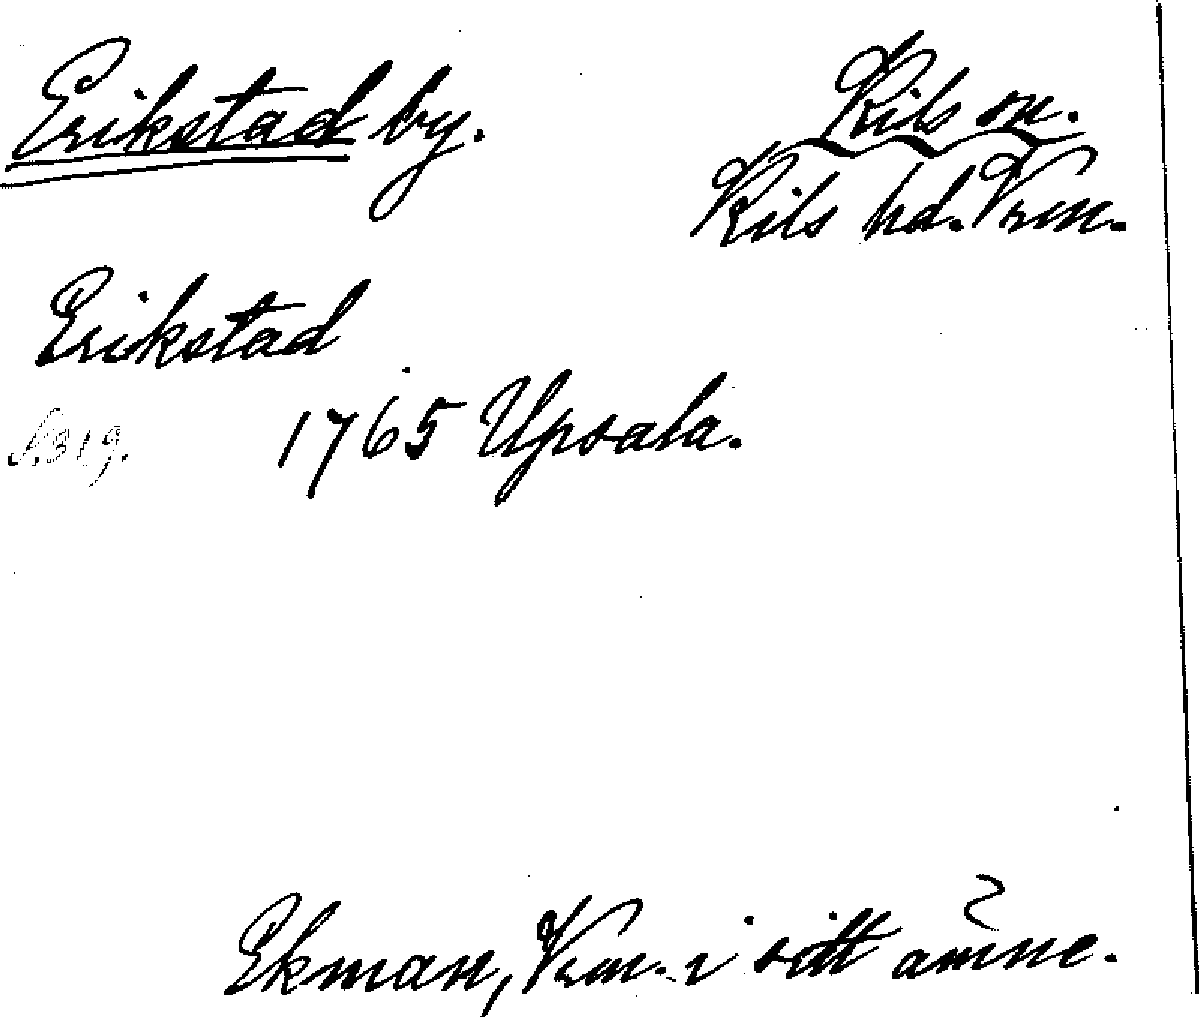 Erikstad by.
Kils sn.
Kils hd. Vrm.
Erikstad
s. 319.
1765 Upsala.
Ekman, Vrm. i sitt ämne.